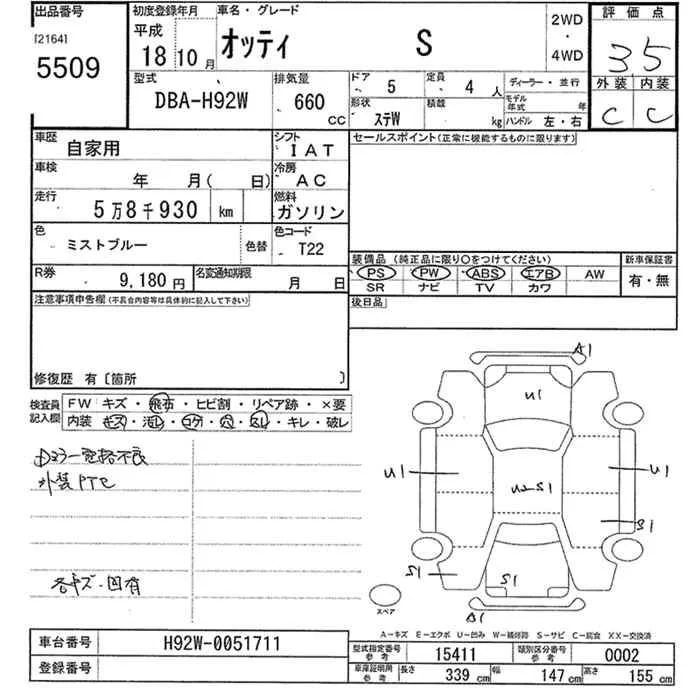 出品番号 初度登録年月 車名・グレード 2WD 評価点
[2164] 平成 オッティ S ・ 35
5509 18 10月 4WD 外装 内装
型式 排気量 ドア 5 定員 4人 ディーラー・並行 C C
DBA-H92W 660 CC 形状 ステW 積載 kg モデル年式 年 ハンドル 左・右
車歴 自家用 シフト IAT セールスポイント(正常に機能するものに限ります)
車検 年 月( 日) 冷房 AC
走行 5万8千930 km 燃料 ガソリン
色 ミストブルー 色替 色コード T22
装備品(純正品に限り○をつけてください) 新車保証書
PS PW ABS エアB AW 有・無
SR ナビ TV カワ
R券 9,180円 名変通知期限 月 日
後日品
注意事項申告欄(不具合内容等は具体的に記入して下さい)
修復歴 有〔箇所 〕
検査員記入欄 FW キズ・飛石・ヒビ割・リペア跡・×要
内装 キズ・汚レ・コゲ・穴・スレ・キレ・破レ
Dミラー電格不良
外装PTC
各キズ・凹有
A1
U1
U1 U2S1 U1
S1
S1 S1
A1
スペア
A-キズ E-エクボ U-凹み W-補修跡 S-サビ C-腐食 XX-交換済
車台番号 H92W-0051711
登録番号
型式指定番号 参考 15411 類別区分番号 参考 0002
車庫証明用 参考 長さ 339 cm 幅 147 cm 高さ 155 cm